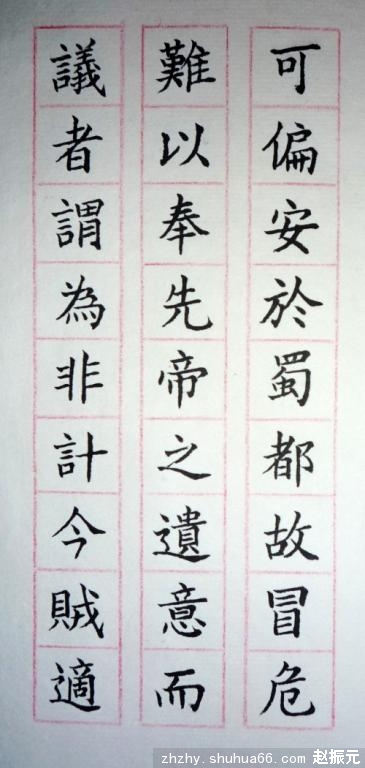 可偏安於蜀都故冒危
難以奉先帝之遺意而
議者謂為非計今賊適
zhzhy.shuhua66.com 赵振元